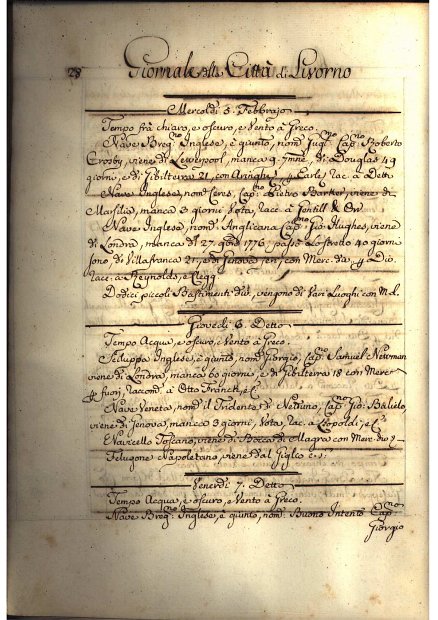 28 Giornale della Città di Livorno
Mercoldì 5. Febbrajo
Tempo frà chiaro, e oscuro, e Vento à Greco.
Nave Breg:no Inglese, è giunto, nom:
Cap:no Roberto
Crosby, viene di Leverpool, manca 9. di Douglas 49
giorni, e di Gibilterra 21, con Aringhi, Carle, rac: a Detto
Nave Inglese, nom: Ceres, Cap:no Pietro Barker, viene di
Marsilia, manca 3 giorni Vota, racc: à Gentill & Orr
Nave Inglese, nom: Anglicana Cap:no Gio: Hughes, viene
di Londra, manca di 27. 1776. passò Lostretto 40 giorni
sono, di Villafranca 21, e di Genova jeri, con Merc: div:
racc: a Reynolds, e Clegg
Dodici piccoli Bastimenti div: vengono di Varj Luoghi con M. d.
Giovedì 6. Detto
Tempo Acqua, e oscuro, e Vento à Greco.
Sciluppa Inglese, è giunto, nom: Giorgio, Cap:no Samuel Newman
viene di Londra, manca 60 giorni, e di Gibilterra 18 con Merc:
fuori, raccom: à Otto Franck, e C.
Nave Veneta, nom: il Tridente di Nettuno, Cap:no Gio: Balielo,
viene di Genova, manca 3 giorni, Vota, rac: a Leopoldi, e C.
Navicello Toscano, viene di Bocca di Magra con Merc: div:
Felugone Napoletano, viene dal Giglio c. s.
Venerdì 7. Detto
Tempo Acqua, e oscuro, e Vento à Greco.
Nave Breg:no Inglese, è giunto, nom: Buono Intento Cap:no
Giorgio